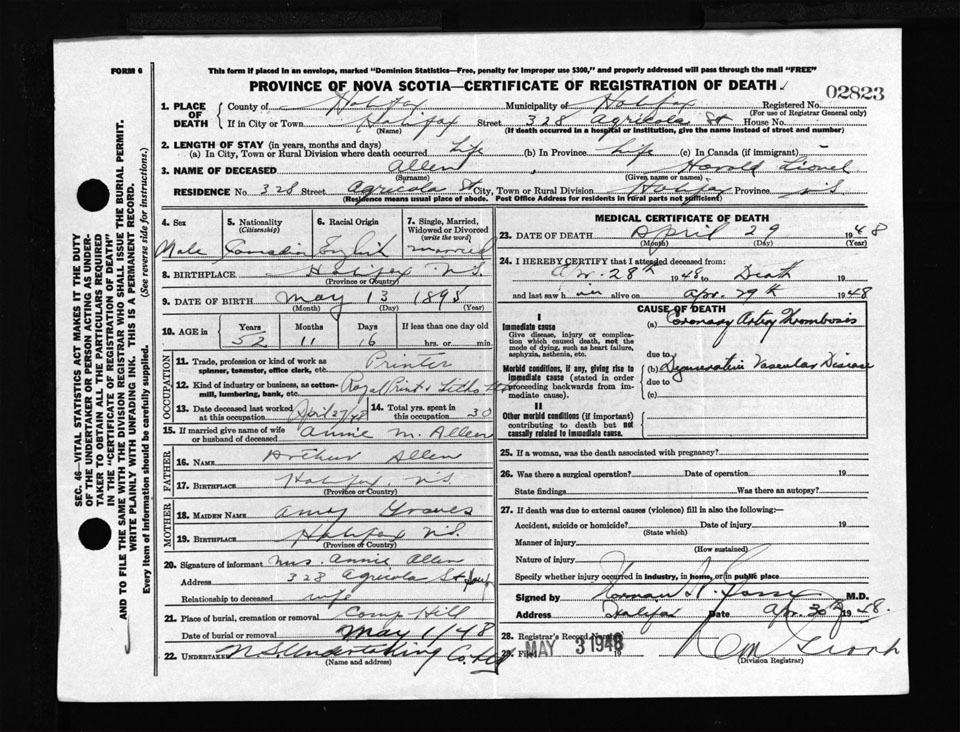 FORM 6
This form if placed in an envelope, marked "Dominion Statistics—Free, penalty for improper use $300," and properly addressed will pass through the mail "FREE"
PROVINCE OF NOVA SCOTIA—CERTIFICATE OF REGISTRATION OF DEATH
02823
1. PLACE OF DEATH
County of Halifax Municipality of Halifax Registered No.
(For use of Registrar General only)
If in City or Town Halifax Street 328 Agricola St House No.
(Name) (If death occurred in a hospital or institution, give the name instead of street and number)
2. LENGTH OF STAY (in years, months and days)
(a) In City, Town or Rural Division where death occurred Life (b) In Province Life (c) In Canada (if immigrant)
3. NAME OF DECEASED Allen, Harold Lionel
(Surname) (Given name or names)
RESIDENCE No. 328 Street Agricola St City, Town or Rural Division Halifax Province N.S.
(Residence means usual place of abode. Post Office Address for residents in rural parts not sufficient)
4. Sex 5. Nationality (Citizenship) 6. Racial Origin 7. Single, Married, Widowed or Divorced (write the word)
Male Canadian English married
8. BIRTHPLACE Halifax N.S.
(Province or Country)
9. DATE OF BIRTH May 13 1895
(Month) (Day) (Year)
10. AGE in Years Months Days If less than one day old
52 11 16 hrs. or min.
OCCUPATION
11. Trade, profession or kind of work as spinner, teamster, office clerk, etc. Printer
12. Kind of industry or business, as cotton-mill, lumbering, bank, etc. Royal Print & Litho
13. Date deceased last worked at this occupation April 27/48
14. Total yrs. spent in this occupation 30
15. If married give name of wife or husband of deceased Annie M. Allen
FATHER
16. NAME Arthur Allen
17. BIRTHPLACE Halifax, N.S.
(Province or Country)
MOTHER
18. MAIDEN NAME Amy Graves
19. BIRTHPLACE Halifax N.S.
(Province or Country)
20. Signature of informant Mrs. Annie Allen
Address 328 Agricola St
Relationship to deceased wife
21. Place of burial, cremation or removal Camp Hill
Date of burial or removal May 1/48
22. UNDERTAKER N.S. Undertaking Co. Ltd
(Name and address)
MEDICAL CERTIFICATE OF DEATH
23. DATE OF DEATH April 29 1948
(Month) (Day) (Year)
24. I HEREBY CERTIFY that I attended deceased from:
Apr. 28th 1948 to Death 19
and last saw him alive on Apr. 29th 1948
CAUSE OF DEATH
I
Immediate cause
Give disease, injury or complication which caused death, not the mode of dying, such as heart failure, asphyxia, asthenia, etc.
(a) Coronary Artery Thrombosis
due to
Morbid conditions, if any, giving rise to immediate cause (stated in order proceeding backwards from immediate cause).
(b) Degenerative Vascular Disease
due to
(c)
II
Other morbid conditions (if important) contributing to death but not causally related to immediate cause.
25. If a woman, was the death associated with pregnancy?
26. Was there a surgical operation? Date of operation 19
State findings Was there an autopsy?
27. If death was due to external causes (violence) fill in also the following:—
Accident, suicide or homicide? Date of injury 19
(State which)
Manner of injury
(How sustained)
Nature of injury
Specify whether injury occurred in industry, in home, or in public place
Signed by Norman M.D.
Address Halifax Date Apr. 30th 1948.
28. Registrar's Record Number
29. Filed MAY 3 1948 19
(Division Registrar)
SEC. 46—VITAL STATISTICS ACT MAKES IT THE DUTY
OF THE UNDERTAKER OR PERSON ACTING AS UNDER-
TAKER TO OBTAIN ALL THE PARTICULARS REQUIRED
IN THE "CERTIFICATE OF REGISTRATION OF DEATH"
AND TO FILE THE SAME WITH THE DIVISION REGISTRAR WHO SHALL ISSUE THE BURIAL PERMIT.
WRITE PLAINLY WITH UNFADING INK. THIS IS A PERMANENT RECORD.
Every item of information should be carefully supplied. (See reverse side for instructions.)